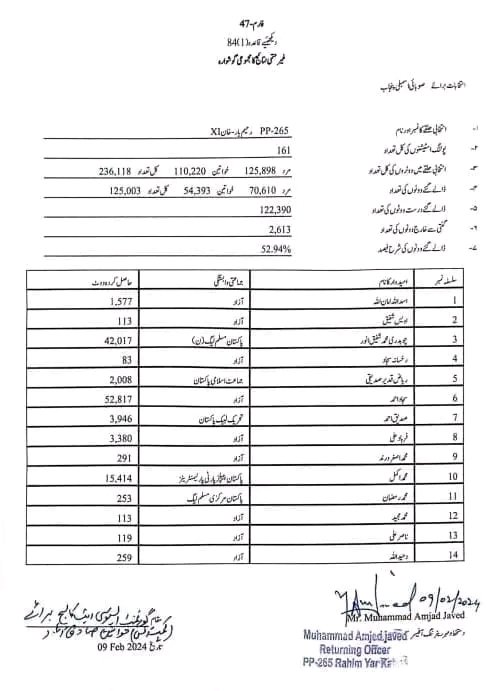 فارم-47
دیکھئیے قاعدہ (1)84
غیر حتمی نتائج کا مجموعی گوشوارہ
انتخابات برائے صوبائی اسمبلی پنجاب
۱- انتخابی حلقے کا نمبر اور نام PP-265 رحیم یار-خان XI
۲- پولنگ اسٹیشنوں کی کل تعداد 161
۳- انتخابی حلقے میں ووٹروں کی کل تعداد مرد 125,898 خواتین 110,220 کل تعداد 236,118
۴- ڈالے گئے ووٹوں کی تعداد مرد 70,610 خواتین 54,393 کل تعداد 125,003
۵- ڈالے گئے درست ووٹوں کی تعداد 122,390
۶- گنتی سے خارج ووٹوں کی تعداد 2,613
۷- ڈالے گئے ووٹوں کی شرح فیصد 52.94%
سلسلہ نمبر امیدوار کا نام جماعتی وابستگی حاصل کردہ ووٹ
1 اسد اللہ امان اللہ آزاد 1,577
2 اویس شفیق آزاد 113
3 چوہدری محمد شفیق انور پاکستان مسلم لیگ (ن) 42,017
4 رخسانہ سجاد آزاد 83
5 ریاض قدیر صدیقی جماعت اسلامی پاکستان 2,008
6 سجاد احمد آزاد 52,817
7 صدیق احمد تحریک لبیک پاکستان 3,946
8 فرہاد علی آزاد 3,380
9 محمد اصغر ورند آزاد 291
10 محمد اکمل پاکستان پیپلز پارٹی پارلیمنٹیرینز 15,414
11 محمد رمضان پاکستان مرکزی مسلم لیگ 253
12 محمد مجید آزاد 113
13 ناصر علی آزاد 119
14 وحید اللہ آزاد 259
09/02/2024
Mr. Muhammad Amjad Javed
دستخط و مہر ریٹرننگ آفیسر
Muhammad Amjed Javed
Returning Officer
PP-265 Rahim Yar
مقام گورنمنٹ ایسوسی ایٹ کالج برائے
خواتین صادق آباد
09 Feb 2024